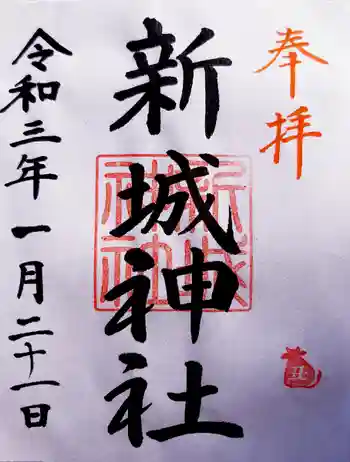 奉拝
新城神社
令和三年一月二十一日
丑